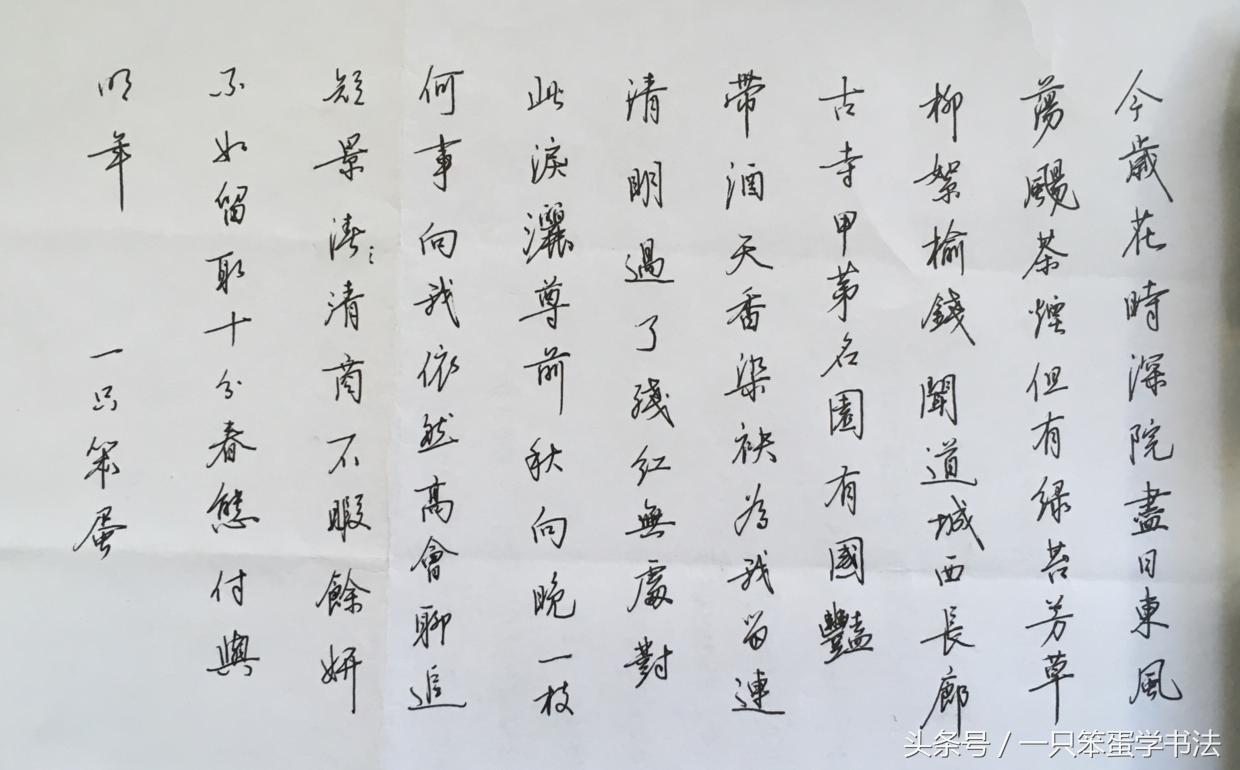 今歲花時深院盡日東風
蕩颺茶煙但有绿苔芳草
柳絮榆錢聞道城西長廊
古寺甲苐名園有國豔
帶酒天香染袂為我留連
清明過了殘紅無處對
此淚灑尊前秋向晚一枝
何事向我依然高會聊追
短景清清商不暇餘妍
不如留取十分春態付與
明年 一只笨蛋
头条号 / 一只笨蛋学书法